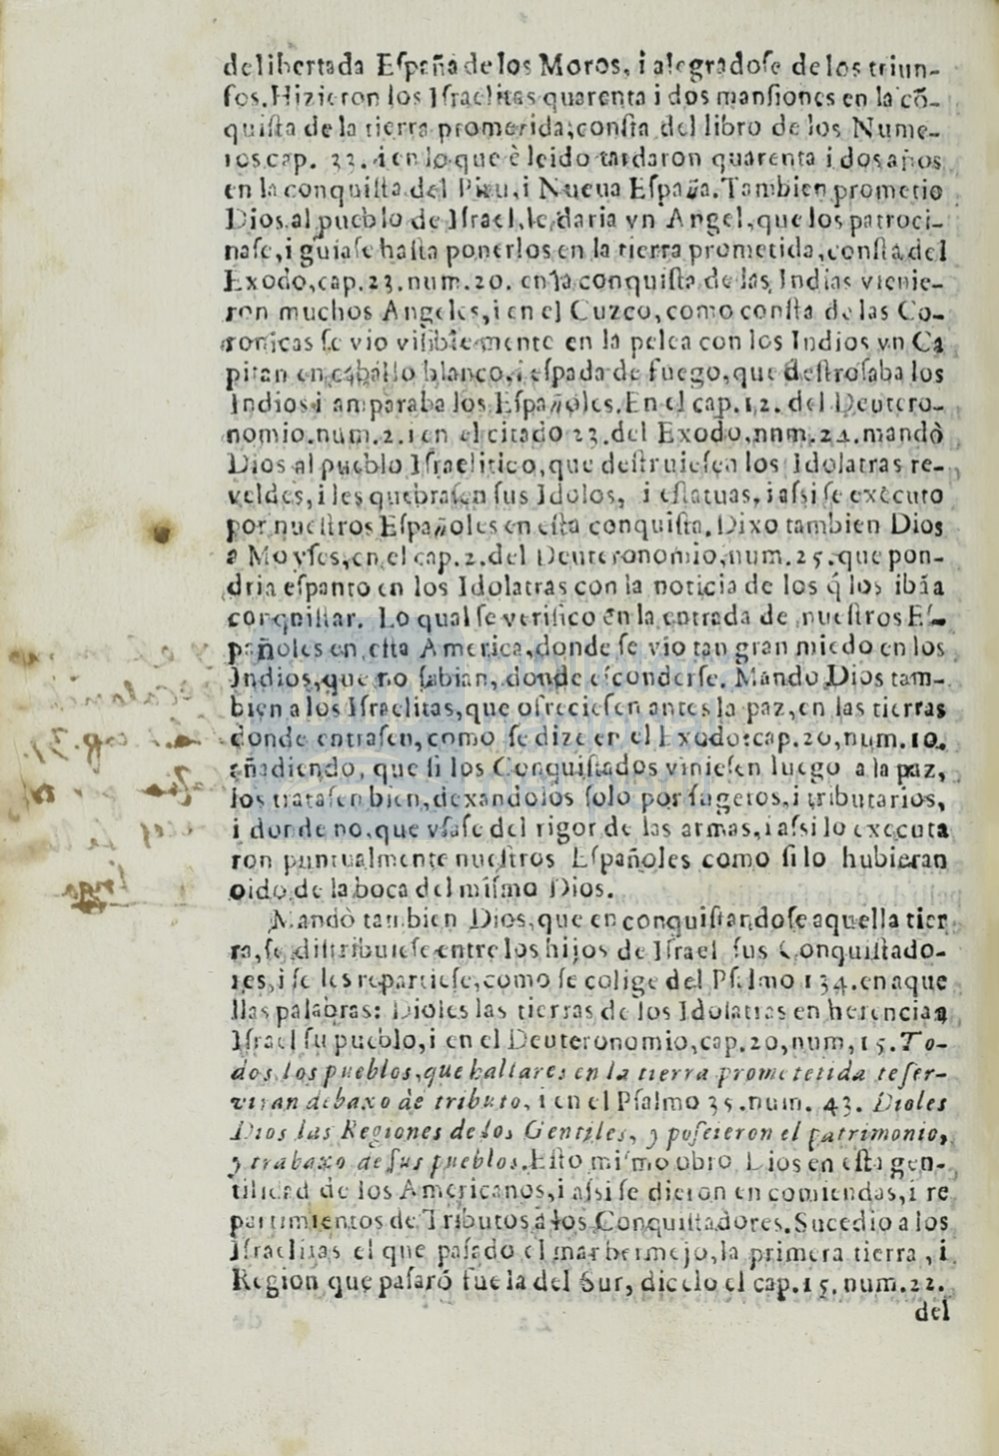 delibertada Eſpaña de los Moros, i alegradoſe de los triun-
fos. Hizieron los Iſraelitas quarenta i dos manſiones en la cõ-
quiſta de la tierra prometida; conſta del libro de los Nume-
ros cap. 33. i en lo que è leido tardaron quarenta i dos años
en la conquiſta del Piru, i Nueua Eſpaña. Tambien prometio
Dios al pueblo de Iſrael, le daria vn Angel, que los patroci-
naſe, i guiaſe haſta ponerlos en la tierra prometida, conſta del
Exodo, cap. 23. num. 20. en la conquiſta de las Indias vienie-
ron muchos Angeles, i en el Cuzco, como conſta de las Co-
ronicas ſe vio viſiblemente en la pelea con los Indios vn Ca
pitan en caballo blanco, i eſpada de fuego, que deſtroſaba los
Indios i amparaba los Eſpañoles. En el cap. 12. del Deutero-
nomio. num. 2. i en el citado 23. del Exodo. nnm. 24. mandò
Dios al pueblo Iſraelitico, que deſtruieſen los Idolatras re-
veldes, i les quebraſen ſus Idolos, i eſtatuas, i aſsi ſe exècuto
por nueſtros Eſpañoles en eſta conquiſta. Dixo tambien Dios
a Moyſes, en el cap. 2. del Deuteronomio, num. 25. que pon-
dria eſpanto en los Idolatras con la noticia de los q̃ los ibãa
conquiſtar. Lo qual ſe verifico en la entrada de nueſtros Eſ-
pañoles en eſta America, donde ſe vio tan gran miedo en los
Indios, que no ſabian, donde eſconderſe. Mando Dios tam-
bien a los Iſraelitas, que ofrecieſen antes la paz, en las tierras
donde entraſen, como ſe dize en el Exodo: cap. 20, num. 10.
añadiendo, que ſi los Conquiſtados vinieſen luego a la paz,
los trataſen bien, dexandolos ſolo por ſugetos, i tributarios,
i donde no, que vſaſe del rigor de las armas, i aſsi lo executa
ron puntualmente nueſtros Eſpañoles como ſi lo hubieran
oido de la boca del miſmo Dios.
Mandò tambien Dios, que en conquiſtandoſe aquella tier
ra, ſe diſtribuieſe entre los hijos de Iſrael ſus Conquiſtado-
res, i ſe les repartieſe, como ſe colige del Pſalmo 134. en aque
llas palabras: Dioles las tierras de los Idolatras en herencia a
Iſrael ſu pueblo, i en el Deuteronomio, cap. 20, num, 15. To-
dos los pueblos, que hallares en la tierra prometetida te ſer-
viran debaxo de tributo, i en el Pſalmo 35. num. 43. Dioles
Dios las Regiones de los Gentiles, y poſeieron el patrimonio,
y trabaxo de ſus pueblos. Eſto miſmo obro Dios en eſta gen-
tilidad de los Americanos, i aſsi ſe dieron en comiendas, i re
partimientos de Tributos à los Conquiſtadores. Sucedio a los
Iſraelitas el que paſado el mar bermejo, la primera tierra, i
Region que paſaró fue la del Sur, dicelo el cap. 15. num. 22.
del